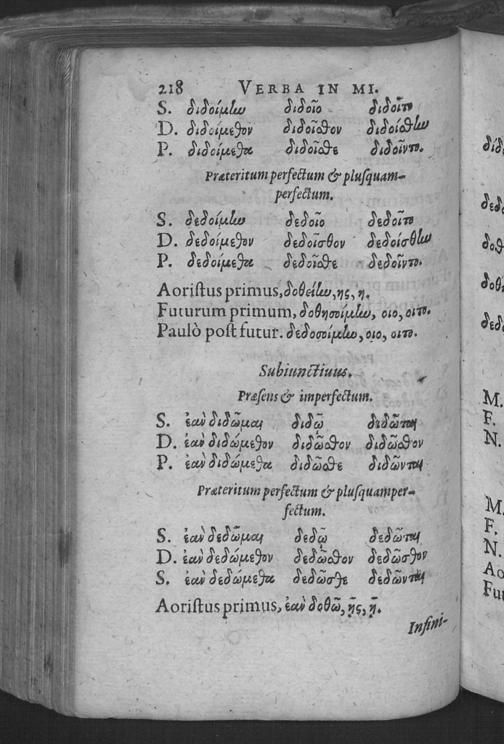 218 VERBA IN MI.
S. διδοίμην διδοῖο διδοῖτο
D. διδοίμεθον διδοῖσθον διδοίσθην
P. διδοίμεθα διδοῖσθε διδοῖντο.
Præteritum perfectum & plusquam-
perfectum.
S. δεδοίμην δεδοῖο δεδοῖτο
D. δεδοίμεθον δεδοῖσθον δεδοίσθην
P. δεδοίμεθα δεδοῖσθε δεδοῖντο.
Aoristus primus, δοθείην, ης, η.
Futurum primum, δοθησοίμην, οιο, οιτο.
Paulò post futur. δεδοσοίμην, οιο, οιτο.
Subiunctiuus.
Præsens & imperfectum.
S. ἐὰν διδῶμαι διδῷ διδῶται
D. ἐὰν διδώμεθον διδῶσθον διδῶσθον
P. ἐὰν διδώμεθα διδῶσθε διδῶνται
Præteritum perfectum & plusquamper-
fectum.
S. ἐὰν δεδῶμαι δεδῷ δεδῶται
D. ἐὰν δεδώμεθον δεδῶσθον δεδῶσθον
S. ἐὰν δεδώμεθα δεδῶσθε δεδῶνται
Aoristus primus, ἐὰν δοθῶ, ῇς, ῇ.
Infini-
M.
F.
N.
M
F.
N.